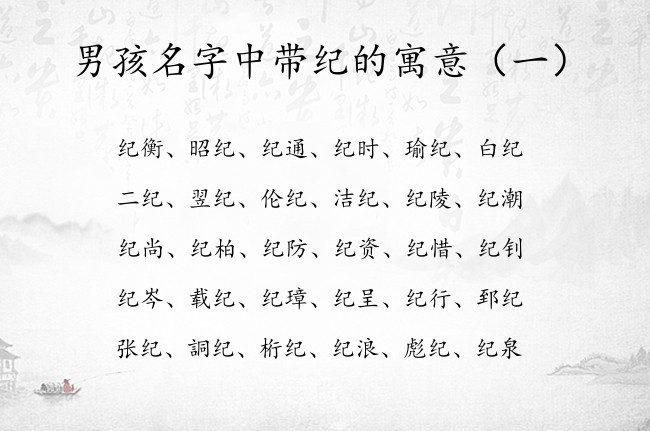 男孩名字中带纪的寓意（一）
纪衡、昭纪、纪通、纪时、瑜纪、白纪
二纪、翌纪、伦纪、洁纪、纪陵、纪潮
纪尚、纪柏、纪防、纪资、纪惜、纪钊
纪岑、载纪、纪璋、纪呈、纪行、郅纪
张纪、詷纪、桁纪、纪浪、彪纪、纪泉